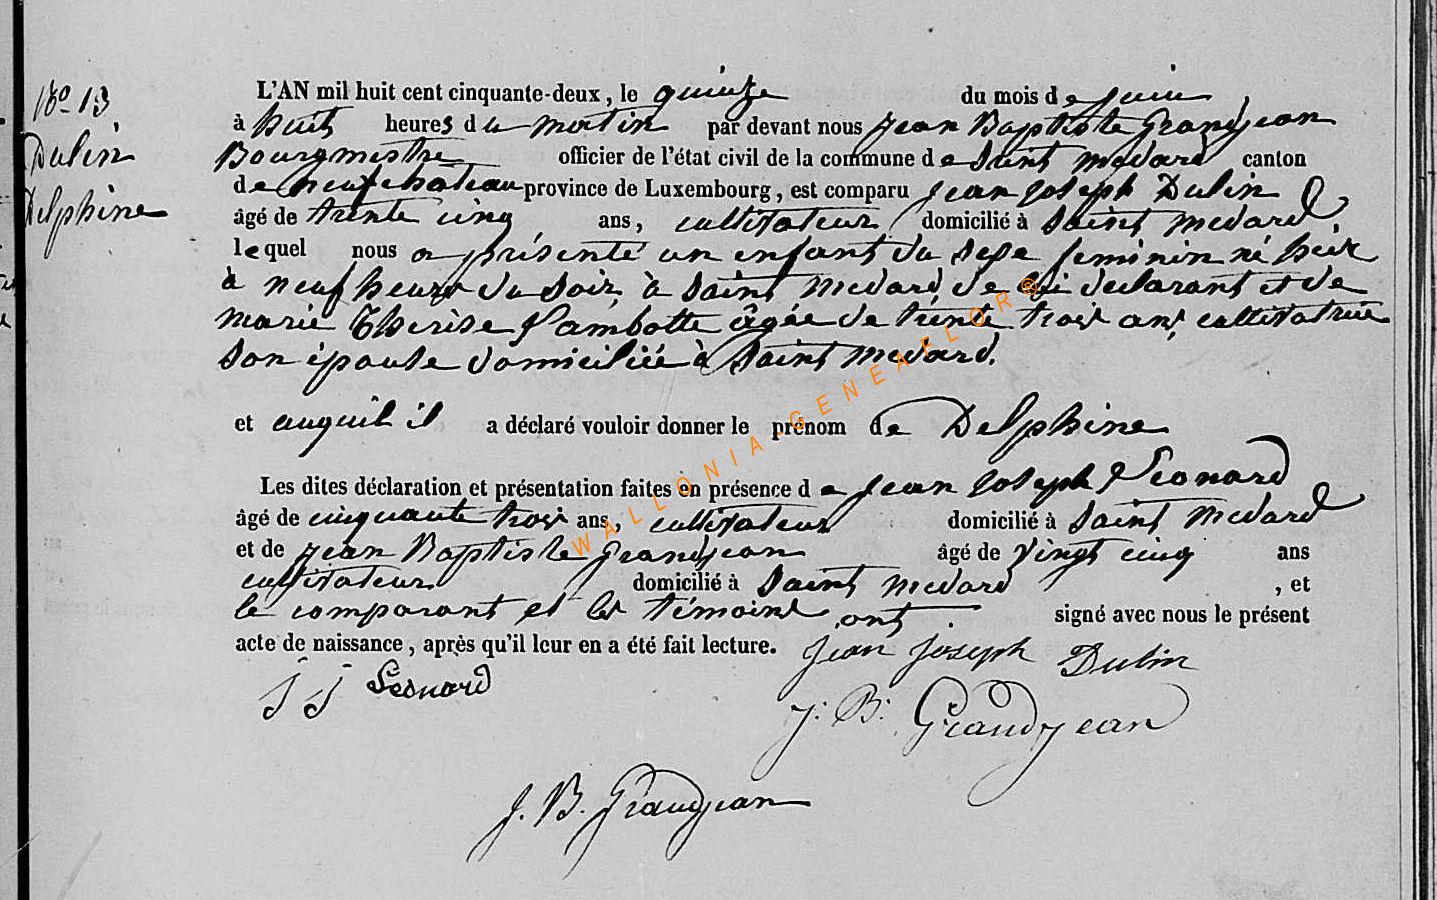 No 13
Dulin
Delphine
L'AN mil huit cent cinquante-deux, le quinze du mois de juin
à huit heures du matin par devant nous jean Baptiste Grandjean
Bourgmestre officier de l'état civil de la commune de Saint medard canton
de neufchateau province de Luxembourg, est comparu jean joseph Dulin
âgé de trente cinq ans, cultivateur domicilié à Saint medard
lequel nous a présenté un enfant du sexe feminin né hier
à neuf heures du soir, à Saint medard de lui declarant et de
marie Thérèse Pambotte âgée de trente trois ans, cultivatrice
son épouse domiciliée à Saint medard.
et auquel il a déclaré vouloir donner le prénom de Delphine
Les dites déclaration et présentation faites en présence de jean joseph Léonard
âgé de cinquante trois ans, cultivateur domicilié à Saint medard
et de jean Baptiste Grandjean âgé de vingt cinq ans
cultivateur domicilié à Saint medard, et
le comparant et les témoins ont signé avec nous le présent
acte de naissance, après qu'il leur en a été fait lecture. Jean Joseph Dulin
J J Léonard
J. B. Grandjean
J. B. Grandjean
WALLONIA-GENEAFLOR®